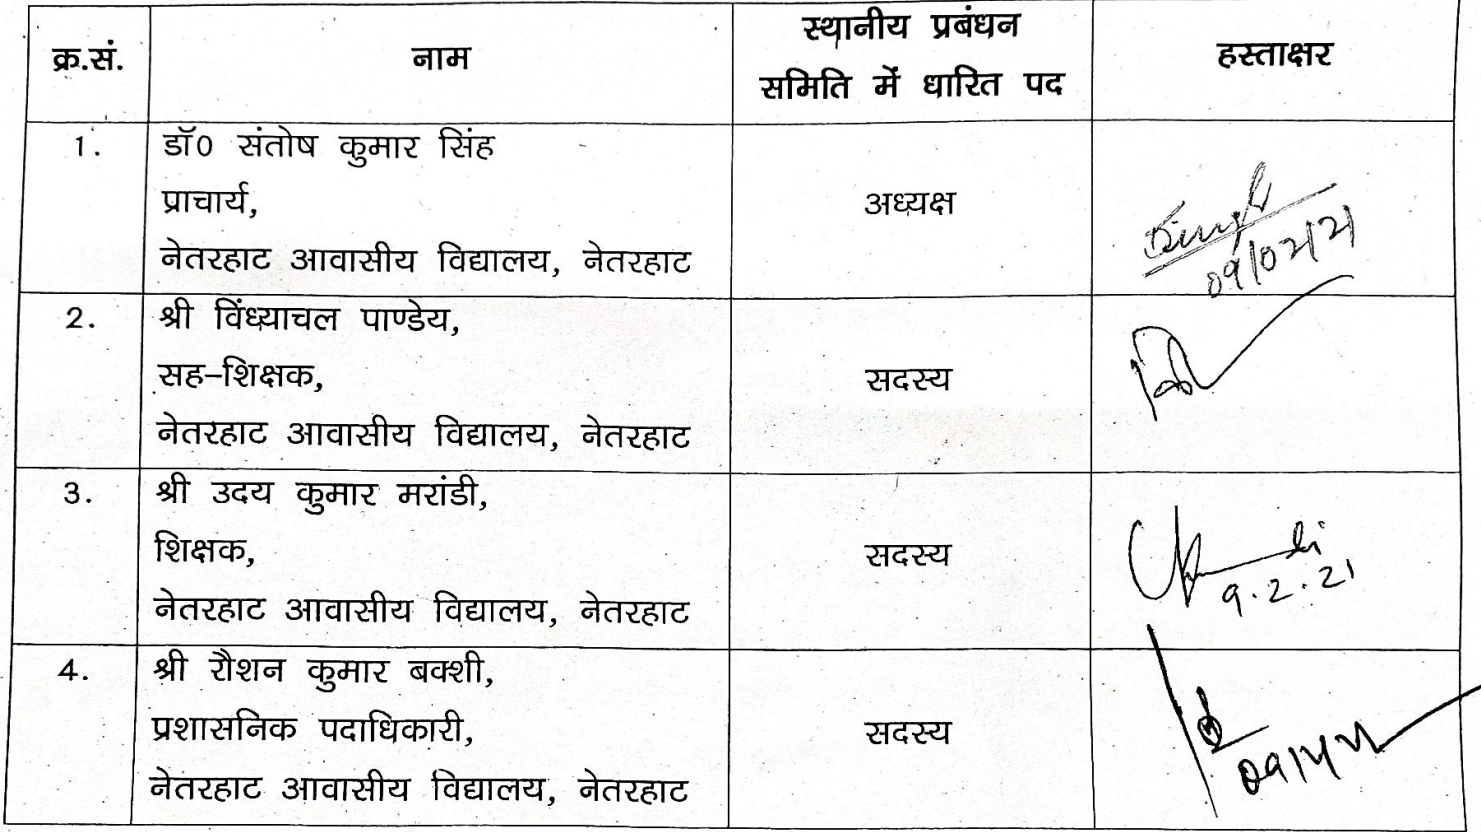 क्र.सं.
नाम
स्थानीय प्रबंधन
समिति में धारित पद
हस्ताक्षर
1.
डॉ0 संतोष कुमार सिंह
प्राचार्य,
नेतरहाट आवासीय विद्यालय, नेतरहाट
अध्यक्ष
2.
श्री विंध्याचल पाण्डेय,
सह-शिक्षक,
नेतरहाट आवासीय विद्यालय, नेतरहाट
सदस्य
3.
श्री उदय कुमार मरांडी,
शिक्षक,
नेतरहाट आवासीय विद्यालय, नेतरहाट
सदस्य
9.2.21
4.
श्री रौशन कुमार बक्शी,
प्रशासनिक पदाधिकारी,
नेतरहाट आवासीय विद्यालय, नेतरहाट
सदस्य